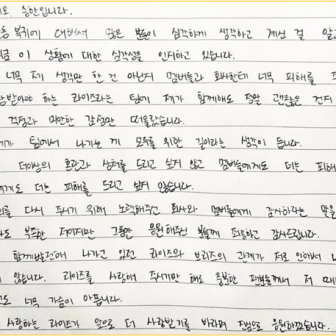 승한입니다.
복귀에 대해서 많은 분들이 심각하게 생각하고 계신 걸
이 상황에 대한 심각성을 인지하고 있습니다.
너무 제 생각만 한 건 아닌지 멤버들과 회사한테 너무 피해를
라이즈라는 팀에 제가 함께해도 정말 괜찮은 건지
걱정과 미안한 감정만 떠올랐습니다.
팀에서 나가는 게 모두를 위한 길이라는 생각이 듭니다.
더이상의 혼란과 상처를 드리고 싶지 않고 멤버들에게도 더는 피해
더는 피해를 드리고 싶지 않습니다.
다시 주시기 위해 노력해주신 회사와 멤버들에게 감사하다는 말을
부족한 저이지만 그동안 응원해주신 분들께 죄송하고 감사드립니다.
나가고 있던 라이즈와 브리즈의 관계가 저로 인해서
않습니다. 라이즈를 사랑해 주시기만 해도 충분한 팬분들께서 저 때
너무 가슴이 아픕니다.
사랑하는 라이즈가 앞으로 더 사랑받기를 바라며 진심으로 응원하겠습니다.